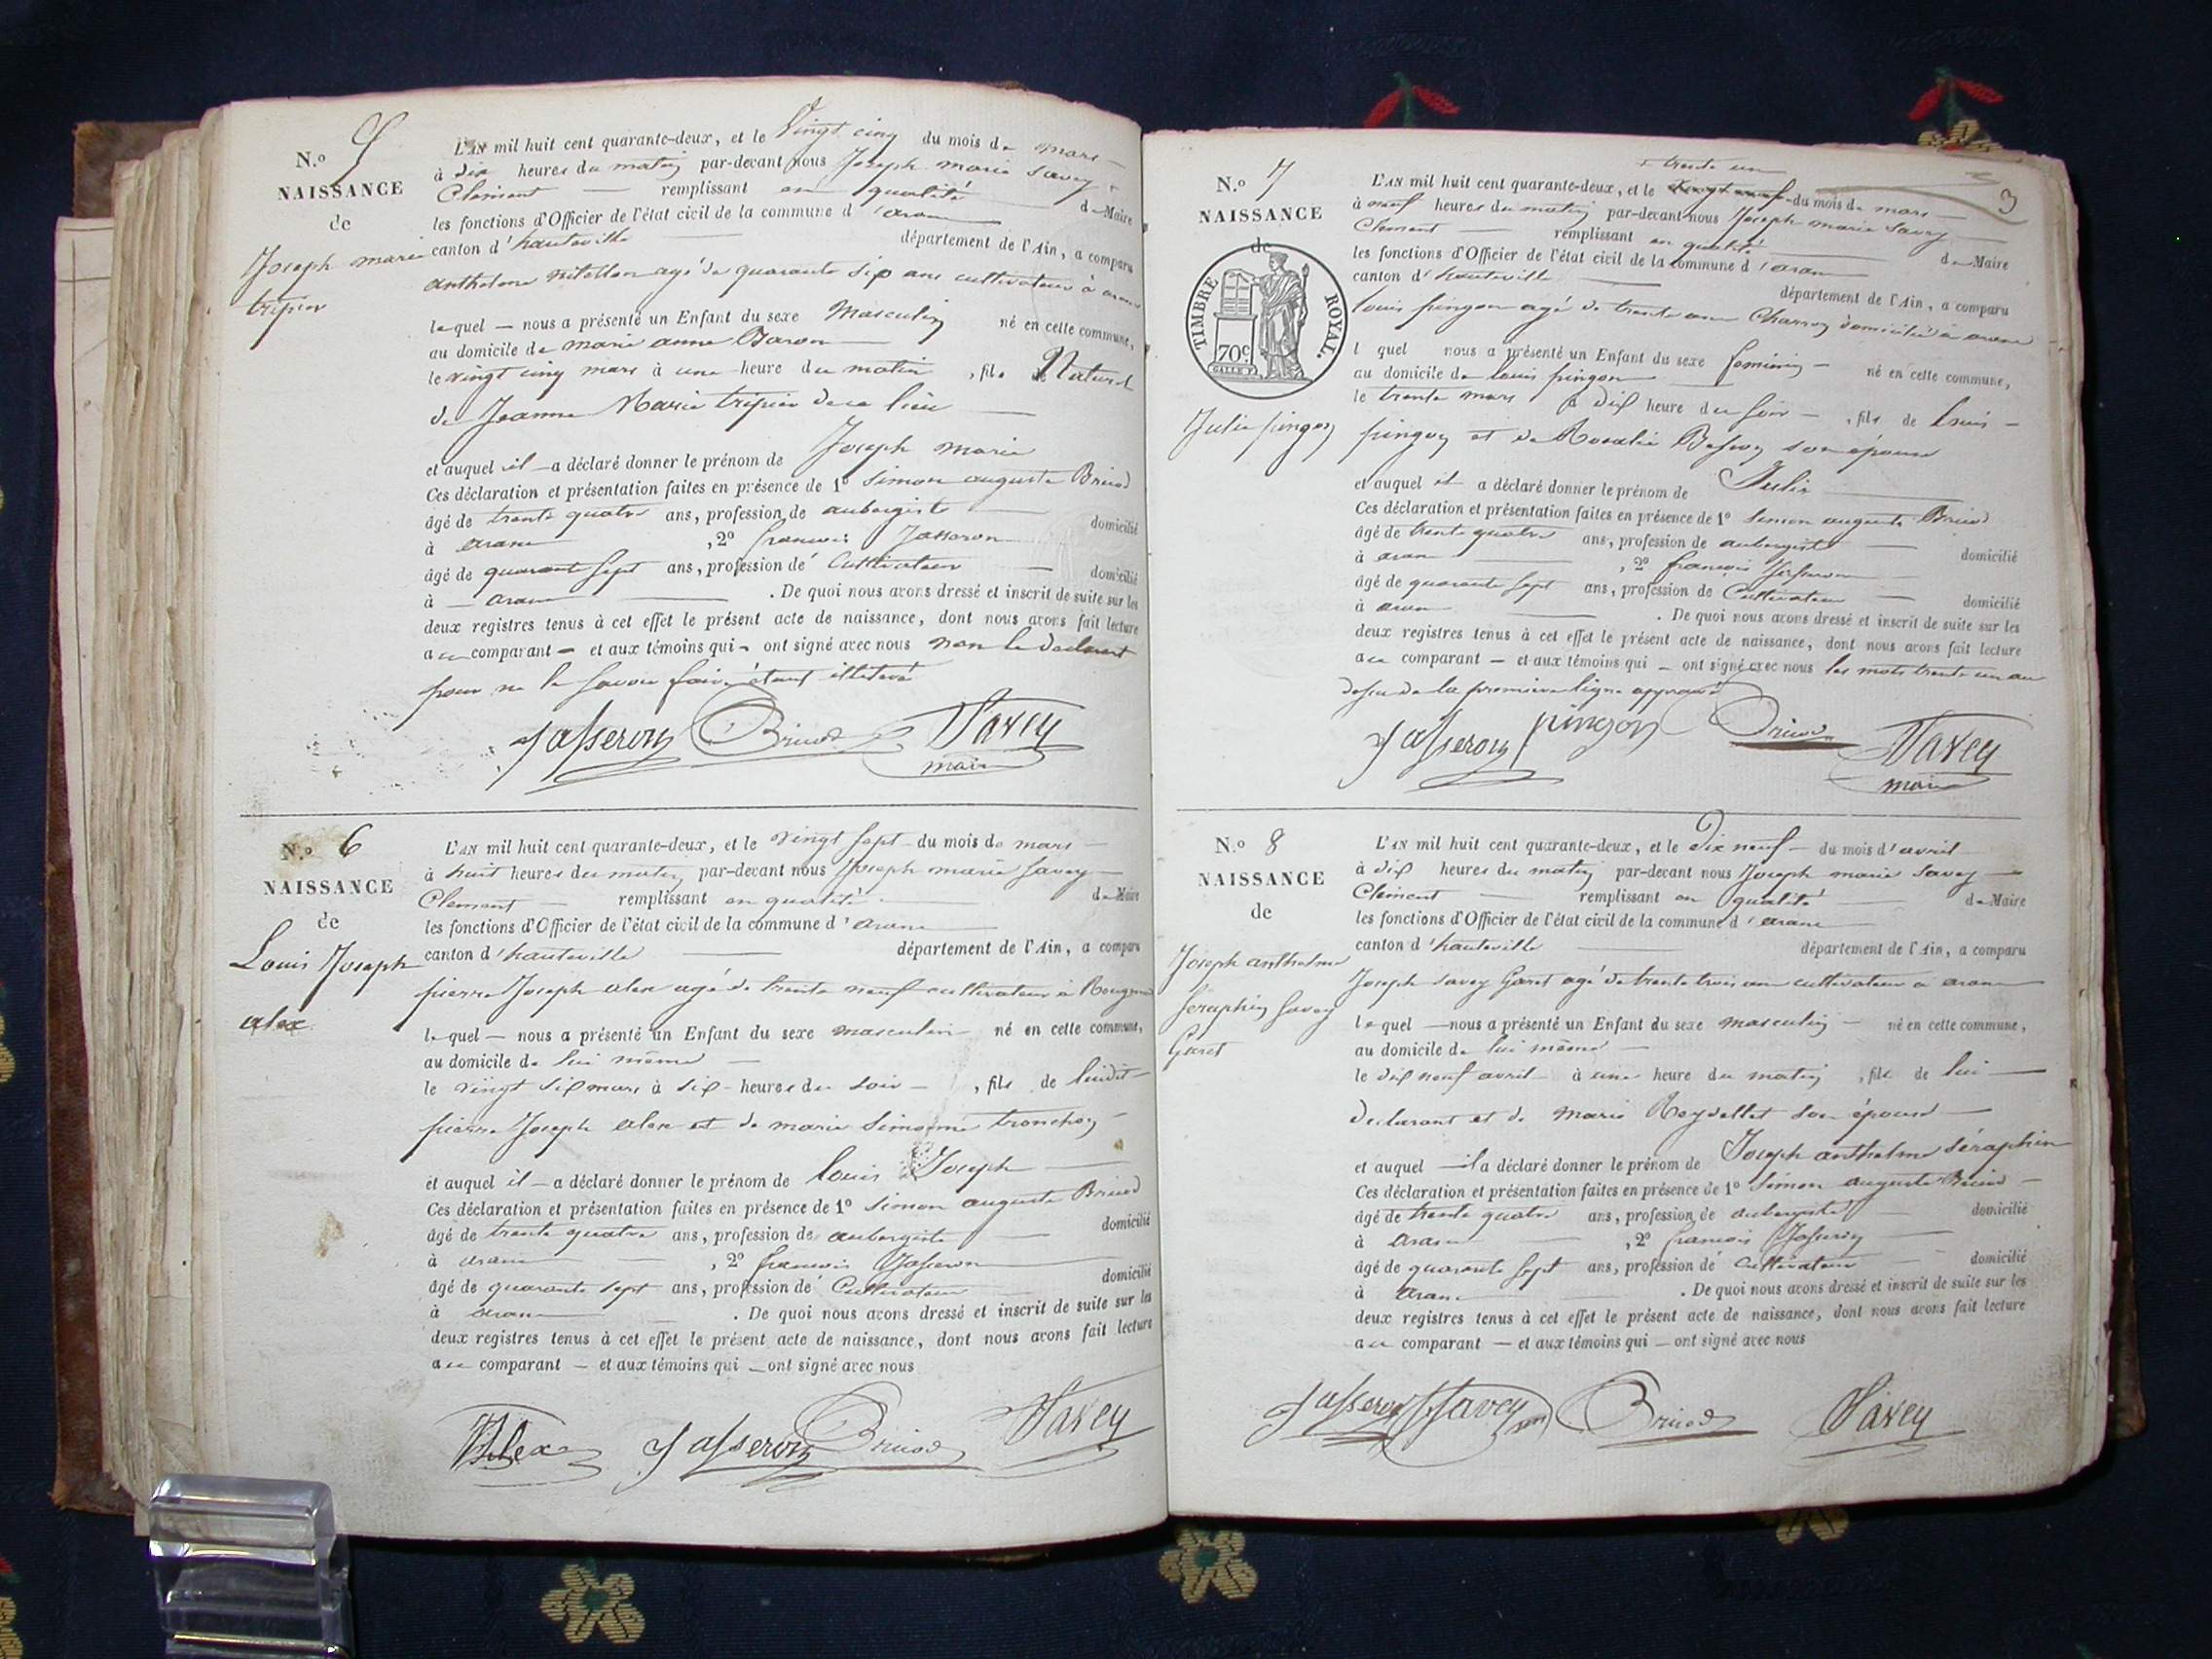 N.o 5
NAISSANCE
de
Joseph marie
tripier
L'AN mil huit cent quarante-deux, et le Vingt cinq du mois de mars
à dix heures du matin par-devant nous Joseph marie Savey
Clement remplissant en qualité de Maire
les fonctions d'Officier de l'état civil de la commune d'aranc
canton d'hauteville département de l'Ain, a comparu
anthelme agé de quarante six ans cultivateur à aranc
lequel nous a présenté un Enfant du sexe Masculin né en cette commune,
au domicile de marie anne
le vingt cinq mars à une heure du matin, fils Naturel
de Jeanne Marie tripier de ce lieu
et auquel il a déclaré donner le prénom de Joseph marie
Ces déclaration et présentation faites en présence de 1o Simon auguste Briod
âgé de trente quatre ans, profession de aubergiste domicilié
à aranc, 2o francois Jasseron
âgé de quarante sept ans, profession de Cultivateur domicilié
à aranc. De quoi nous avons dressé et inscrit de suite sur les
deux registres tenus à cet effet le présent acte de naissance, dont nous avons fait lecture
au comparant et aux témoins qui ont signé avec nous non le declarant
pour ne le savoir faire étant illetéré
Jasseron Briod Savey
maire
N.o 6
NAISSANCE
de
Louis Joseph
alex
L'AN mil huit cent quarante-deux, et le vingt sept du mois de mars
à huit heures du matin par-devant nous Joseph marie Savey
Clement remplissant en qualité de Maire
les fonctions d'Officier de l'état civil de la commune d'aranc
canton d'hauteville département de l'Ain, a comparu
pierre Joseph alex agé de trente neuf cultivateur à
lequel nous a présenté un Enfant du sexe masculin né en cette commune,
au domicile de lui même
le vingt six mars à six heures du soir, fils de luidit
pierre Joseph alex et de marie simonne tronchon
et auquel il a déclaré donner le prénom de Louis Joseph
Ces déclaration et présentation faites en présence de 1o Simon auguste Briod
âgé de trente quatre ans, profession de aubergiste domicilié
à aranc, 2o francois Jasseron
âgé de quarante sept ans, profession de Cultivateur domicilié
à aranc. De quoi nous avons dressé et inscrit de suite sur les
deux registres tenus à cet effet le présent acte de naissance, dont nous avons fait lecture
au comparant et aux témoins qui ont signé avec nous
Alex Jasseron Briod Savey
3
N.o 7
NAISSANCE
de
TIMBRE ROYAL.
70c
Julie pingon
+ trente un
L'AN mil huit cent quarante-deux, et le vingt neuf du mois de mars
à neuf heures du matin par-devant nous Joseph marie Savey
Clement remplissant en qualité de Maire
les fonctions d'Officier de l'état civil de la commune d'aranc
canton d'hauteville département de l'Ain, a comparu
louis pingon agé de trente ans Charron domicilié à aranc
l quel nous a présenté un Enfant du sexe feminin né en cette commune,
au domicile de louis pingon
le trente mars à dix heure du soir, fils de louis
pingon et de Rosalie son épouse
et auquel il a déclaré donner le prénom de Julie
Ces déclaration et présentation faites en présence de 1o Simon auguste Briod
âgé de trente quatre ans, profession de aubergiste domicilié
à aranc, 2o francois Jasseron
âgé de quarante sept ans, profession de Cultivateur domicilié
à aranc. De quoi nous avons dressé et inscrit de suite sur les
deux registres tenus à cet effet le présent acte de naissance, dont nous avons fait lecture
au comparant et aux témoins qui ont signé avec nous les mots trente un au
dessu de la premiere ligne approuvé
Jasseron pingon Briod Savey
maire
N.o 8
NAISSANCE
de
Joseph anthelme
Séraphin Savey
Garet
L'AN mil huit cent quarante-deux, et le Dix neuf du mois d'avril
à dix heures du matin par-devant nous Joseph marie Savey
Clement remplissant en qualité de Maire
les fonctions d'Officier de l'état civil de la commune d'aranc
canton d'hauteville département de l'Ain, a comparu
Joseph Savey Garet agé de trente trois ans cultivateur a aranc
lequel nous a présenté un Enfant du sexe masculin né en cette commune,
au domicile de lui même
le dix neuf avril à une heure du matin, fils de lui
declarant et de marie Reydellet son épouse
et auquel il a déclaré donner le prénom de Joseph anthelme Séraphin
Ces déclaration et présentation faites en présence de 1o Simon auguste Briod
âgé de trente quatre ans, profession de aubergiste domicilié
à aranc, 2o francois Jasseron
âgé de quarante sept ans, profession de Cultivateur domicilié
à aranc. De quoi nous avons dressé et inscrit de suite sur les
deux registres tenus à cet effet le présent acte de naissance, dont nous avons fait lecture
au comparant et aux témoins qui ont signé avec nous
Jasseron Savey Briod Savey